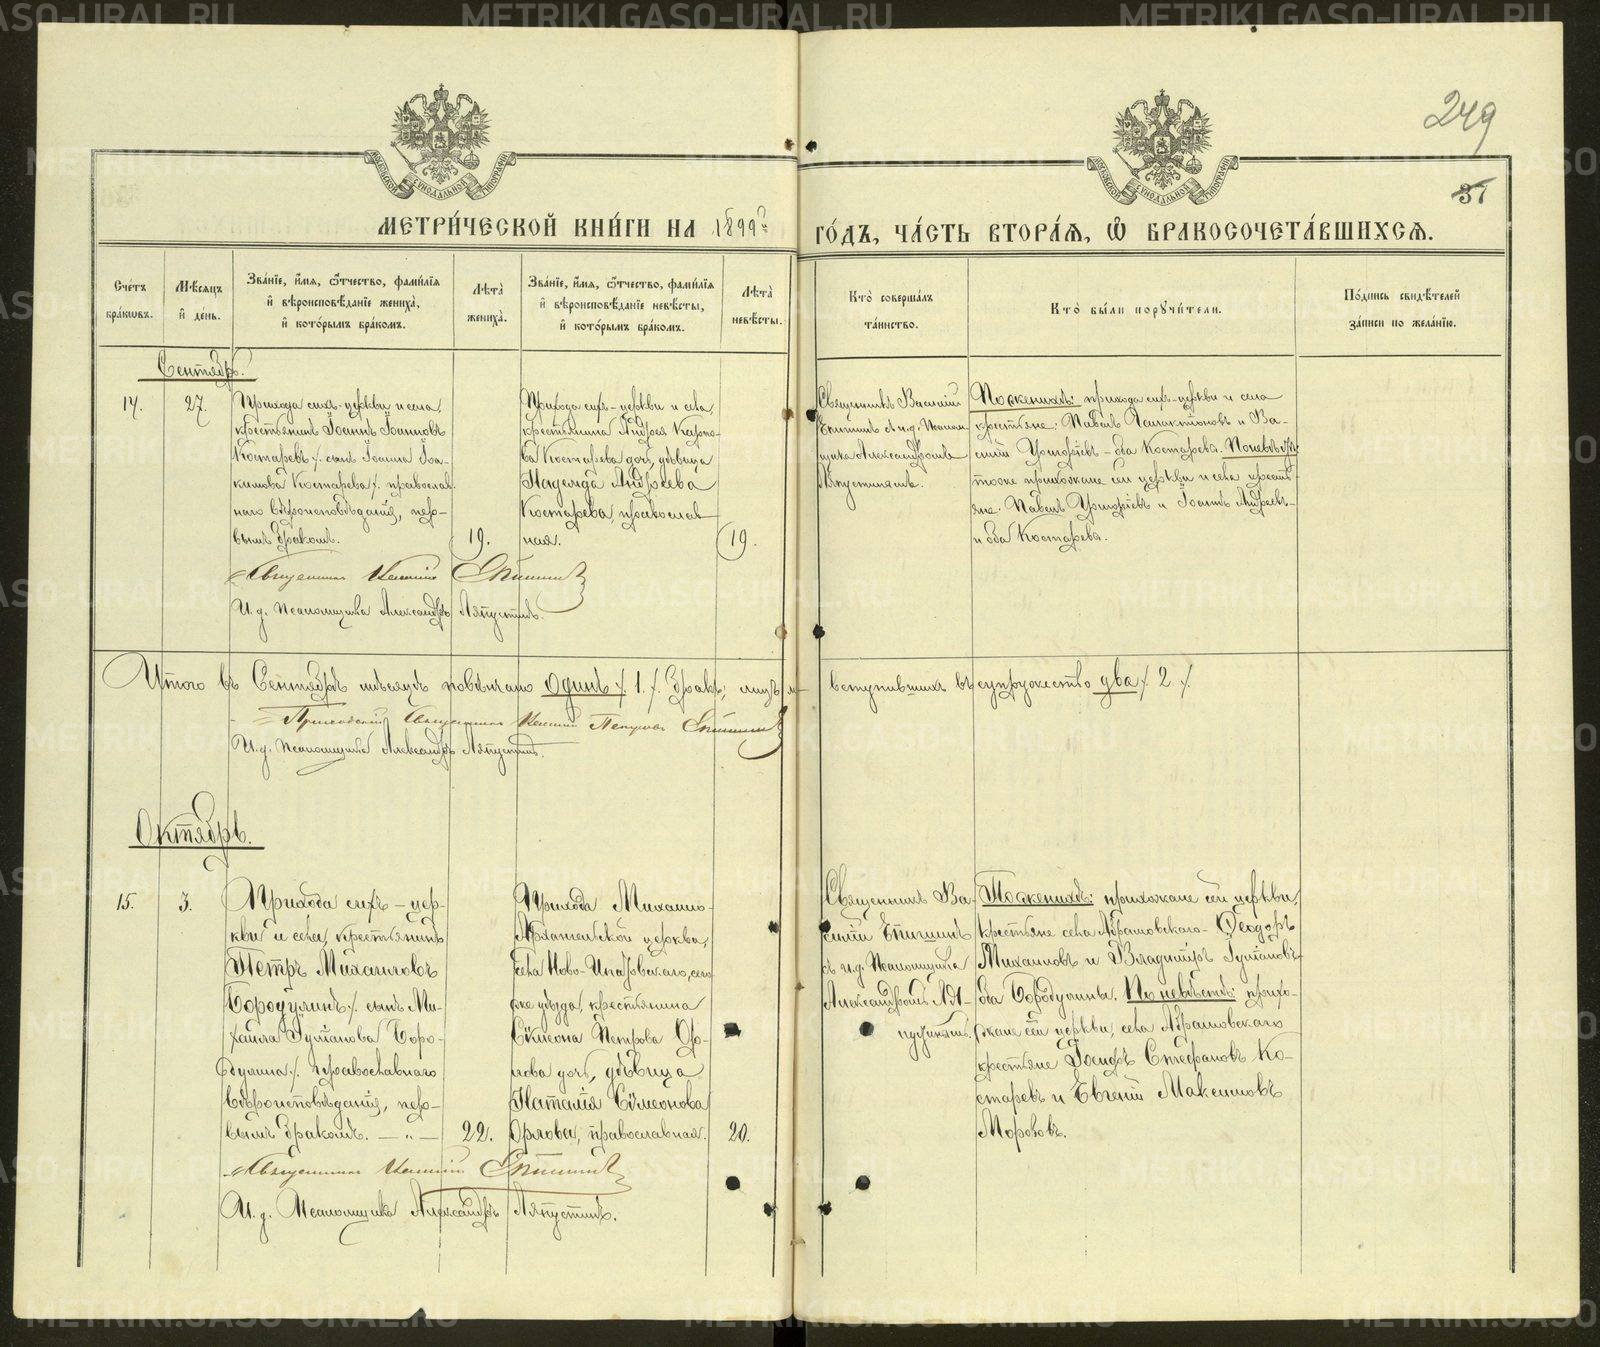 249
37
МОСКОВСКОЙ СѴНОДАЛЬНОЙ ТИПОГРАФІИ
МОСКОВСКОЙ СѴНОДАЛЬНОЙ ТИПОГРАФІИ
МЕТРИ́ЧЕСКОЙ КНИ́ГИ НА 1899й ГО́ДЪ, ЧА́СТЬ ВТОРА́Ѧ, Ѽ БРАКОСОЧЕТА́ВШИХСѦ.
Сче́тъ бра́ковъ.
Мѣ́сяцъ и҆ де́нь.
Зва́ніе, и҆́мя, ѻ҆́тчество, фами́лія и҆ вѣроисповѣ́даніе жениха̀, и҆ кото́рымъ бра́комъ.
Лѣта̀ жениха̀.
Зва́ніе, и҆́мя, ѻ҆́тчество, фами́лія и҆ вѣроисповѣ́даніе невѣ́сты, и҆ кото́рымъ бра́комъ.
Лѣта̀ невѣ́сты.
Кто̀ соверша́лъ та́инство.
Кто̀ бы́ли поручи́тели.
По́дпись свидѣ́телей за́писи по жела́нію.
Сентябрь.
14.
27.
Прихода сихъ-церкви и села,
крестьянинъ Іоаннъ Іоанновъ
Костаревъ /. сынъ Іоанна Іоа-
кимова Костарева /. православ-
наго вѣроисповѣданія, пер-
вымъ бракомъ.
19.
Прихода сихъ-церкви и села,
крестьянина Андрея Карпо-
ва Костарева дочь, дѣвица
Надежда Андреева
Костарева, православ-
ная.
19.
Священникъ Василій
Епишинъ с и.д. псалом-
щика Александромъ
Ляпустинымъ.
По женихѣ: прихода сихъ-церкви и села
крестьяне: Павелъ Галактіоновъ и Ва-
силій Григорьевъ-оба Костаревы. По невѣстѣ:
тоже прихожане сей церкви и села крестья-
не: Павелъ Григорьевъ и Іоаннъ Андреевъ-
и оба Костаревы.
Священникъ Василій Епишинъ
И. д. псаломщика Александръ Ляпустинъ.
Итого въ Сентябрѣ мѣсяцѣ повѣнчано одинъ /. 1. /. бракъ, лицъ вступившихъ въ супружество два /. 2 /.
Приходскій Священникъ Василій Петровъ Епишинъ
И. д. псаломщика Александръ Ляпустинъ.
Октябрь.
15.
3.
Прихода сихъ-цер-
кви и села, крестьянинъ
Петръ Михаиловъ
Бородулинъ /. сынъ Ми-
хаила Боро-
дулина /. православнаго
вѣроисповѣданія, пер-
вымъ бракомъ. — „ —
22.
Прихода Михаило-
Архангельской церкви,
села Ново-Ипатовскаго, сего
же уѣзда, крестьянина
Сѵмеона Петрова Ор-
лова дочь, дѣвица
Наталія Сѵмеонова
Орлова, православная.
20.
Священникъ Ва-
силій Епишинъ
съ и.д. псаломщика
Александромъ Ля-
пустинымъ.
По женихѣ: прихожане сей церкви,
крестьяне села Абрамовскаго-Ѳеодоръ
Михаиловъ и Владиміръ
оба Бородулины. По невѣстѣ: прихо-
жане сей церкви, села Абрамовскаго
крестьяне Іосифъ Стефановъ Ко-
старевъ и Евгеній Максимовъ
Морозовъ.
Священникъ Василій Епишинъ
И. д. Псаломщика Александръ Ляпустинъ.
METRIKI.GASO-URAL.RU